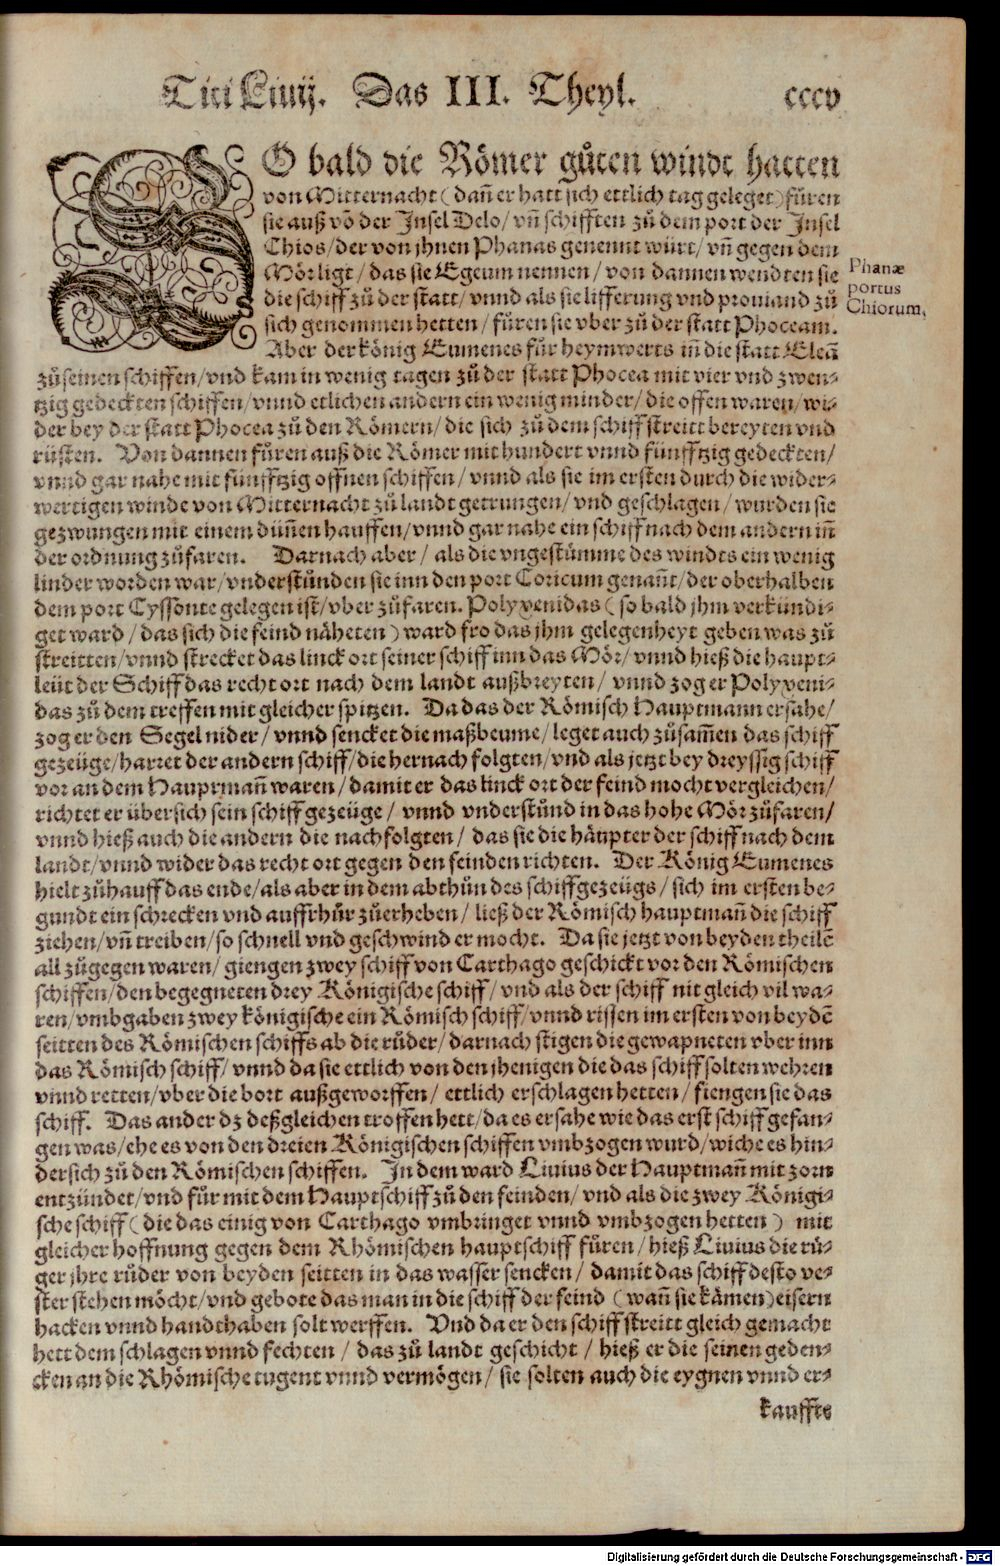 Titi Liuij. Das III. Theyl. cccv
SO bald die Römer gůten windt hatten
von Mitternacht (dañ er hatt sich ettlich tag geleget) fůren
sie auß võ der Jnsel Delo / vñ schifften zů dem port der Jnsel
Chios / der von jhnen Phanas genennt würt / vñ gegen dem
Mör ligt / das sie Egeum nennen / von dannen wendten sie
die schiff zů der statt / vnnd als sie lifferung vnd prouiand zů
sich genommen hetten / fůren sie vber zů der statt Phoceam.
Aber der könig Eumenes fůr heymwerts iñ die statt Eleã
zů seinen schiffen / vnd kam in wenig tagen zů der statt Phocea mit vier vnd zwen-
tzig gedeckten schiffen / vnnd etlichen andern ein wenig minder / die offen waren / wi-
der bey der statt Phocea zů den Römern / die sich zů dem schiffstreitt bereyten vnd
rüsten. Von dannen fůren auß die Römer mit hundert vnnd fünfftzig gedeckten /
vnnd gar nahe mit fünfftzig offnen schiffen / vnnd als sie im ersten durch die wider-
wertigen winde von Mitternacht zů landt getrungen / vnd geschlagen / wurden sie
gezwungen mit einem düñen hauffen / vnnd gar nahe ein schiff nach dem andern iñ
der ordnung zůfaren. Darnach aber / als die vngestümme des windts ein wenig
linder worden war / vnderstůnden sie inn den port Coricum genañt / der oberhalben
dem port Cyssonte gelegen ist / vber zůfaren. Polyxenidas (so bald jhm verkündi-
get ward / das sich die feind näheten) ward fro das jhm gelegenheyt geben was zů
streitten / vnnd strecket das linck ort seiner schiff inn das Mör / vnnd hieß die haupt-
leüt der Schiff das recht ort nach dem landt außbreyten / vnnd zog er Polyxeni-
das zů dem treffen mit gleicher spitzen. Da das der Römisch Hauptmann ersahe /
zog er den Segel nider / vnnd sencket die maßbeume / leget auch zůsam̃en das schiff
gezeüge / harret der andern schiff / die hernach folgten / vnd als jetzt bey dreyssig schiff
vor an dem Hauprmañ waren / damit er das linck ort der feind mocht vergleichen /
richtet er übersich sein schiffgezeüge / vnnd vnderstůnd in das hohe Mör zůfaren /
vnnd hieß auch die andern die nachfolgten / das sie die häupter der schiff nach dem
landt / vnnd wider das recht ort gegen den feinden richten. Der König Eumenes
hielt zůhauff das ende / als aber in dem abthůn des schiffgezeügs / sich im ersten be-
gundt ein schrecken vnd auffrhůr zůerheben / ließ der Römisch hauptmañ die schiff
ziehen / vñ treiben / so schnell vnd geschwind er mocht. Da sie jetzt von beyden theilẽ
all zůgegen waren / giengen zwey schiff von Carthago geschickt vor den Römischen
schiffen / den begegneten drey Königische schiff / vnd als der schiff nit gleich vil wa-
ren / vmbgaben zwey königische ein Römisch schiff / vnnd rissen im ersten von beydẽ
seitten des Römischen schiffs ab die růder / darnach stigen die gewapneten vber inn
das Römisch schiff / vnnd da sie ettlich von den jhenigen die das schiff solten wehren
vnnd retten / vber die bort außgeworffen / ettlich erschlagen hetten / fiengen sie das
schiff. Das ander dz deßgleichen troffen hett / da es ersahe wie das erst schiff gefan-
gen was / ehe es von den dreien Königischen schiffen vmbzogen wurd / wiche es hin-
dersich zů den Römischen schiffen. Jn dem ward Liuius der Hauptmañ mit zorn
entzündet / vnd fůr mit dem Hauptschiff zů den feinden / vnd als die zwey Königi-
sche schiff (die das einig von Carthago vmbringet vnnd vmbzogen hetten) mit
gleicher hoffnung gegen dem Rhömischen hauptschiff fůren / hieß Liuius die rů-
ger jhre růder von beyden seitten in das wasser sencken / damit das schiff desto ve-
ster stehen möcht / vnd gebote das man in die schiff der feind (wañ sie kämen) eisern
hacken vnnd handthaben solt werffen. Vnd da er den schiffstreitt gleich gemacht
hett dem schlagen vnnd fechten / das zů landt geschicht / hieß er die seinen geden-
cken an die Rhömische tugent vnnd vermögen / sie solten auch die eygnen vnnd er-
kauffts
Phanæ
portus
Chiorum,
Digitalisierung gefördert durch die Deutsche Forschungsgemeinschaft - DFG